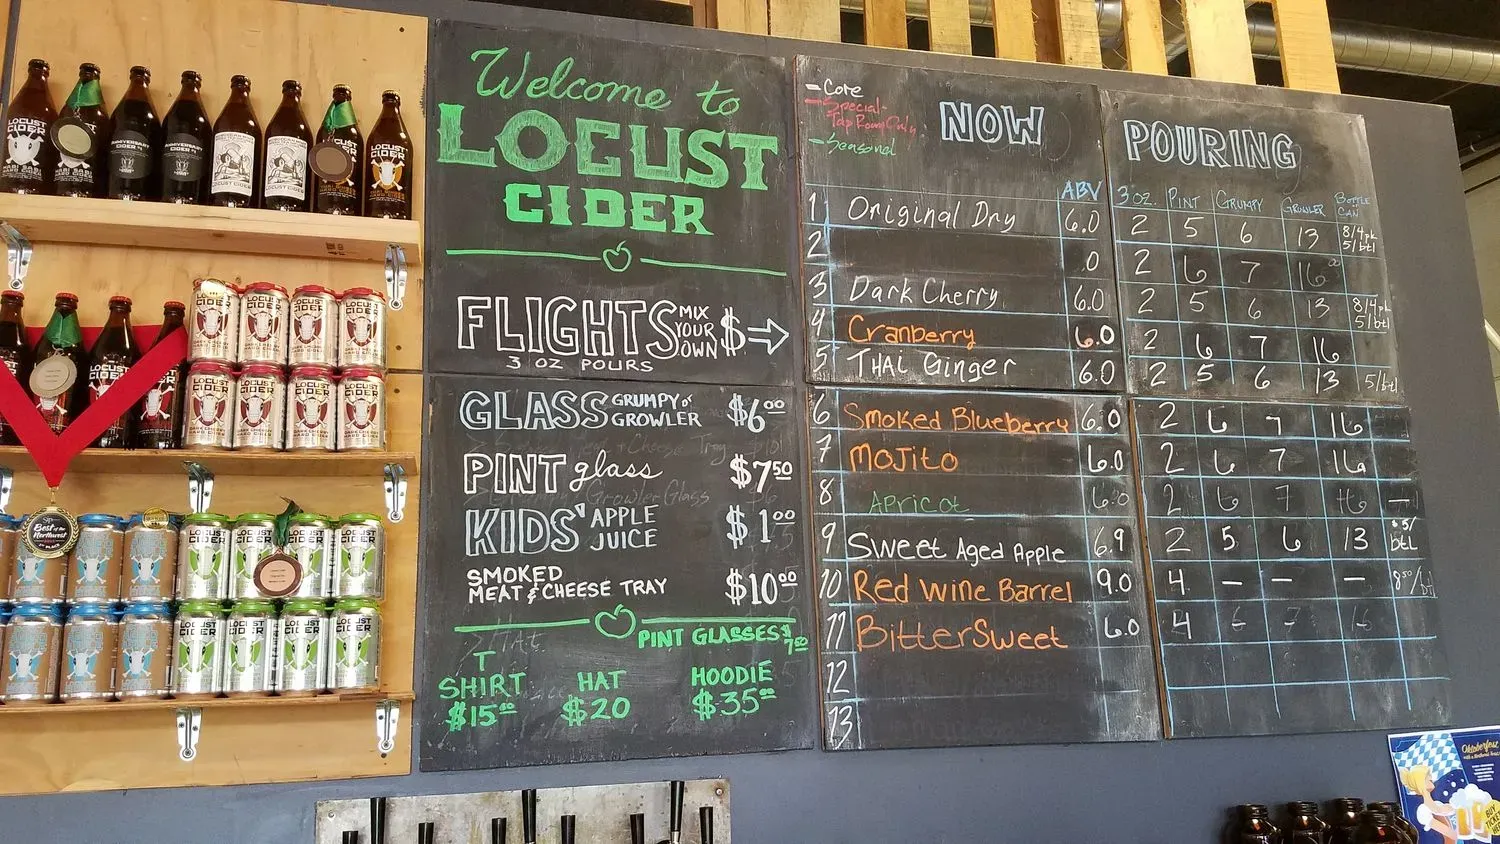 Welcome to
LOCUST
CIDER
FLIGHTS MIX YOUR OWN $
3 OZ POURS
GLASS GRUMPY or GROWLER $6.00
PINT glass $7.50
KIDS' APPLE JUICE $1.00
SMOKED
MEAT & CHEESE TRAY $10.00
PINT GLASSES $7.50
T SHIRT $15.00
HAT $20
HOODIE $35.00
- Core
- Special- Tap Room Only
- Seasonal
NOW POURING
ABV 3 OZ. PINT GRUMPY GROWLER BOTTLE CAN
1 Original Dry 6.0 2 5 6 13 8/4pk 5/btl
2 .0 2 6 7 16
3 Dark Cherry 6.0 2 5 6 13 8/4pk 5/btl
4 Cranberry 6.0 2 6 7 16
5 THAI Ginger 6.0 2 5 6 13 5/btl
6 Smoked Blueberry 6.0 2 6 7 16
7 Mojito 6.0 2 6 7 16
8 Apricot 6.0 2 6 7 16 —
9 Sweet Aged Apple 6.9 2 5 6 13 $5/btl
10 Red Wine Barrel 9.0 4 — — — 8.50/btl
11 BitterSweet 6.0 4
12
13
LOCUST CIDER
ANNIVERSARY CIDER
LOCUST CIDER
Best of the Northwest
Oktoberfest